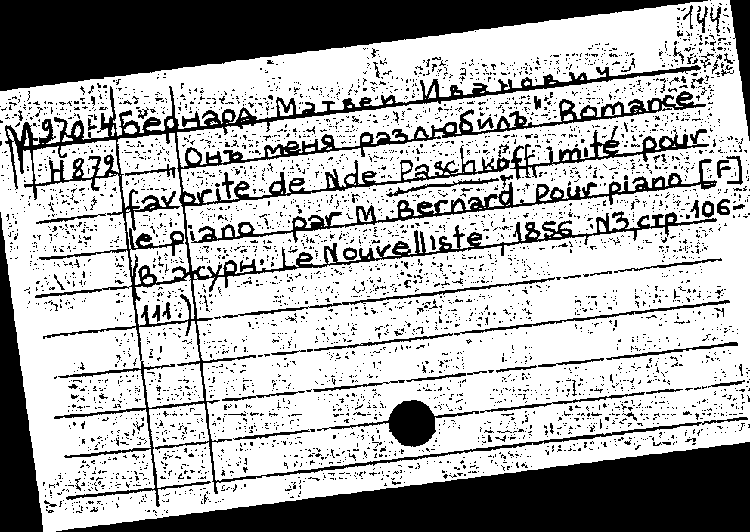 144
М970-4 Бернард, Матвей Иванович
Н872 „Онъ меня разлюбилъ" Romance
favorite de Nde Paschkoff imité pour
le piano par M. Bernard. Pour piano [F]
(В журн: Le Nouvelliste, 1856, N3, стр. 106-
111.)